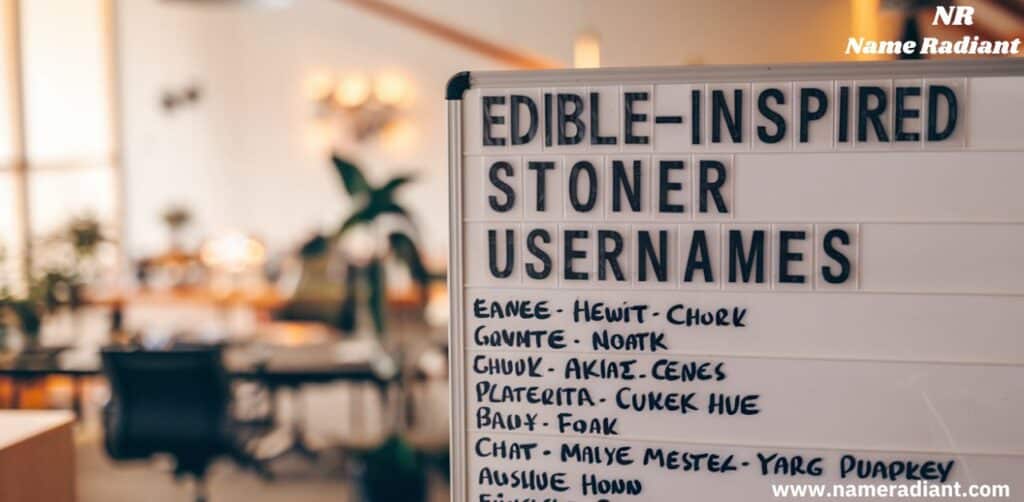 NR
Name Radiant
EDIBLE-INSPIRED
STONER
USERNAMES
EANEE - HEWIT - CHORK
GOVNTE - NOATK
CHUUK - AKIAƐ - CENES
PLATERITA - CUKEK HUE
BAUY - FOAK
CHAT - MALYE MESTEL - YARG PUAPKEY
AUSHUE HONN
www.nameradiant.com